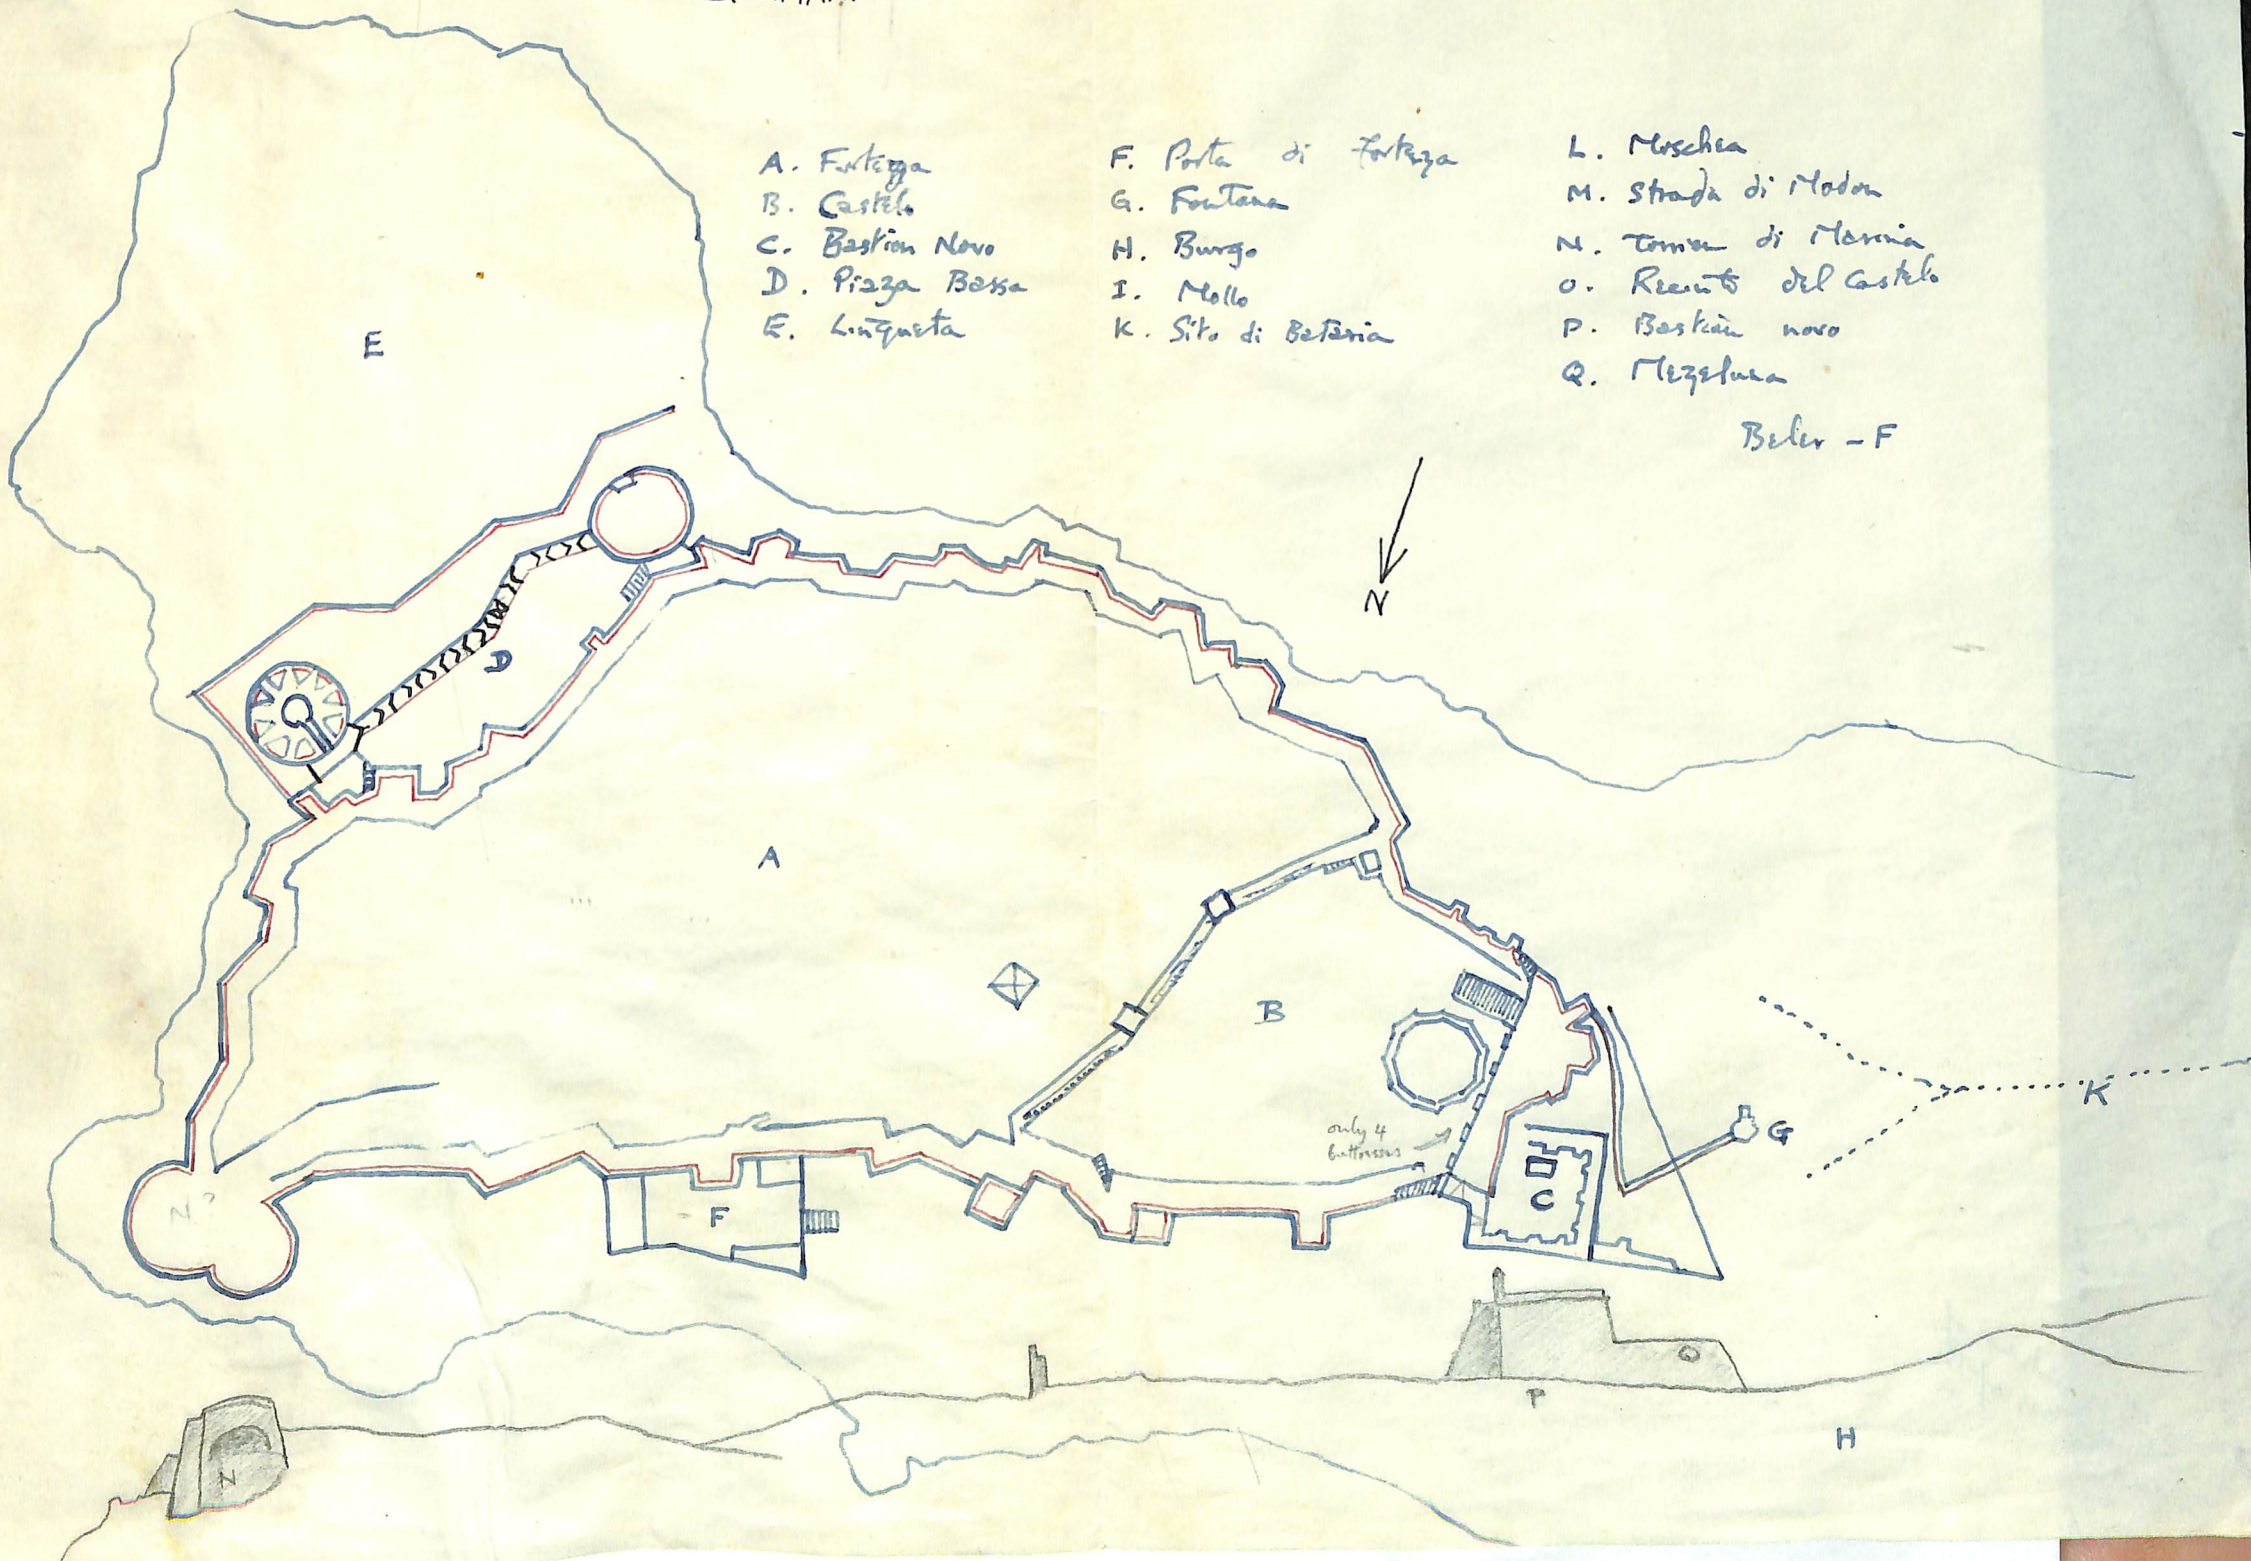 A. Fortezza
B. Castelo
C. Bastion Novo
D. Piazza Bassa
E. Linqueta
F. Porta di Fortezza
G. Fontana
H. Burgo
I. Mollo
K. Sito di Bataria
L. Moschea
M. Strada di Modon
N. Torrion di Marina
O. Recinto del Castelo
P. Bastion novo
Q. Mezeluna
- F
E
N
D
A
B
only 4
buttresses
K
G
C
N ?
F
Q
P
H
N